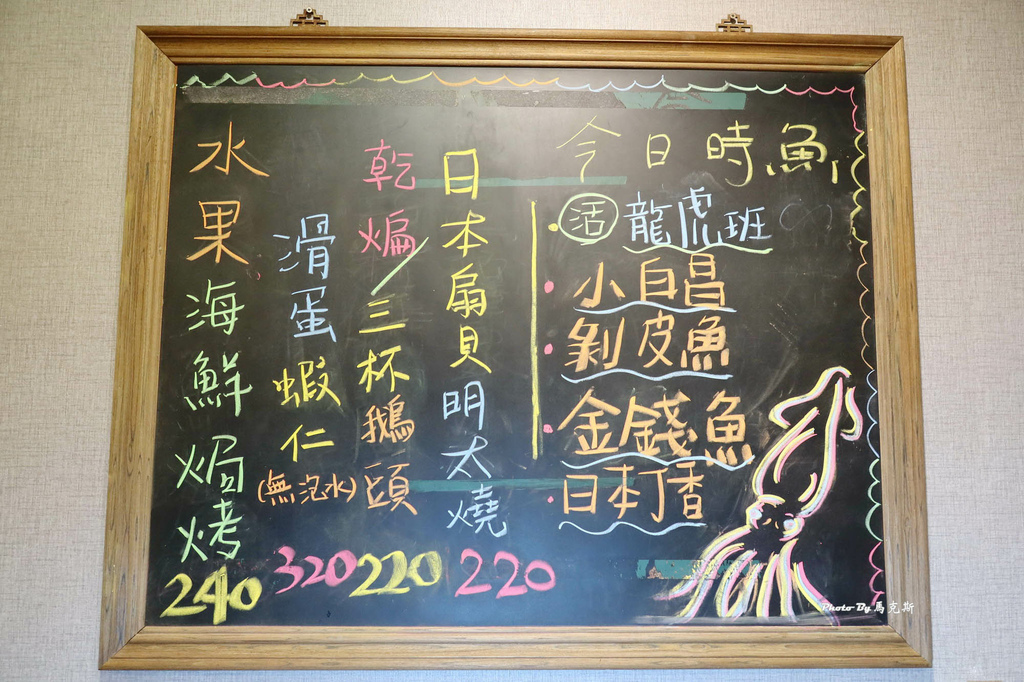 今日時魚
活龍虎班
小白昌
剝皮魚
金錢魚
日本丁香
日本扇貝明太燒
220
乾煸/三杯鵝頭
220
滑蛋蝦仁
(無泡水)
320
水果海鮮焗烤
240
Photo By 馬克斯